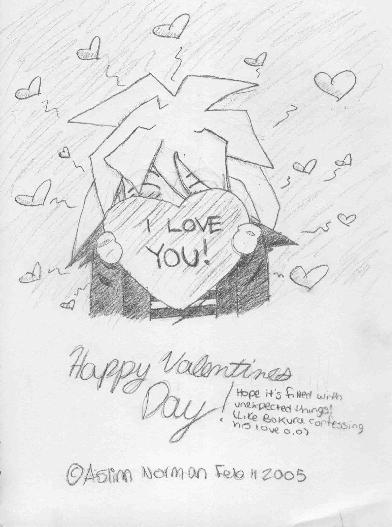 I LOVE
YOU!
Happy Valentines
Day!
Hope it's filled with
unexpected things!
(Like Bakura confessing
his love o.o)
© Norman Feb 11 2005